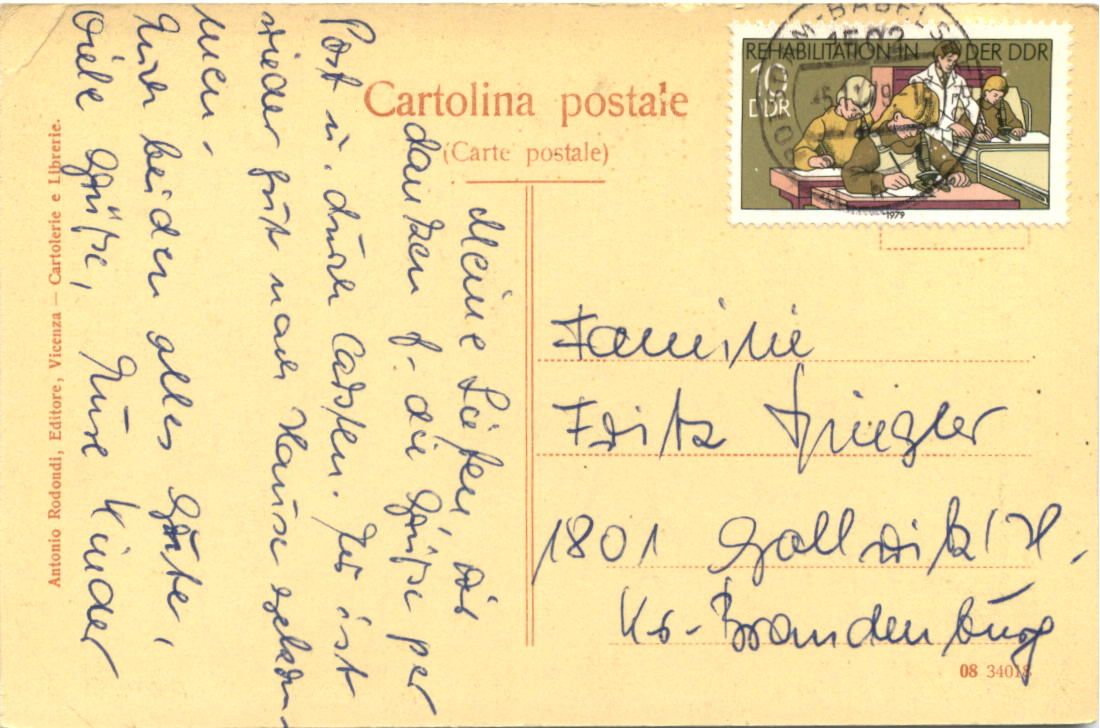 Cartolina postale
(Carte postale)
REHABILITATION IN DER DDR
10
DDR
1979
M-BABELS
1502
Antonio Rodondi, Editore, Vicenza — Cartolerie e Librerie.
Meine Lieben, wir
danken f. die Grüße per
Post u. durch Carsten. Er ist
wieder gut nach Hause gekom-
men.
Euch beiden alles Gute,
Viele Grüße, Eure Kinder
Familie
Fritz
1801 Gollwitz/H.
Kr-Brandenburg
08 34018